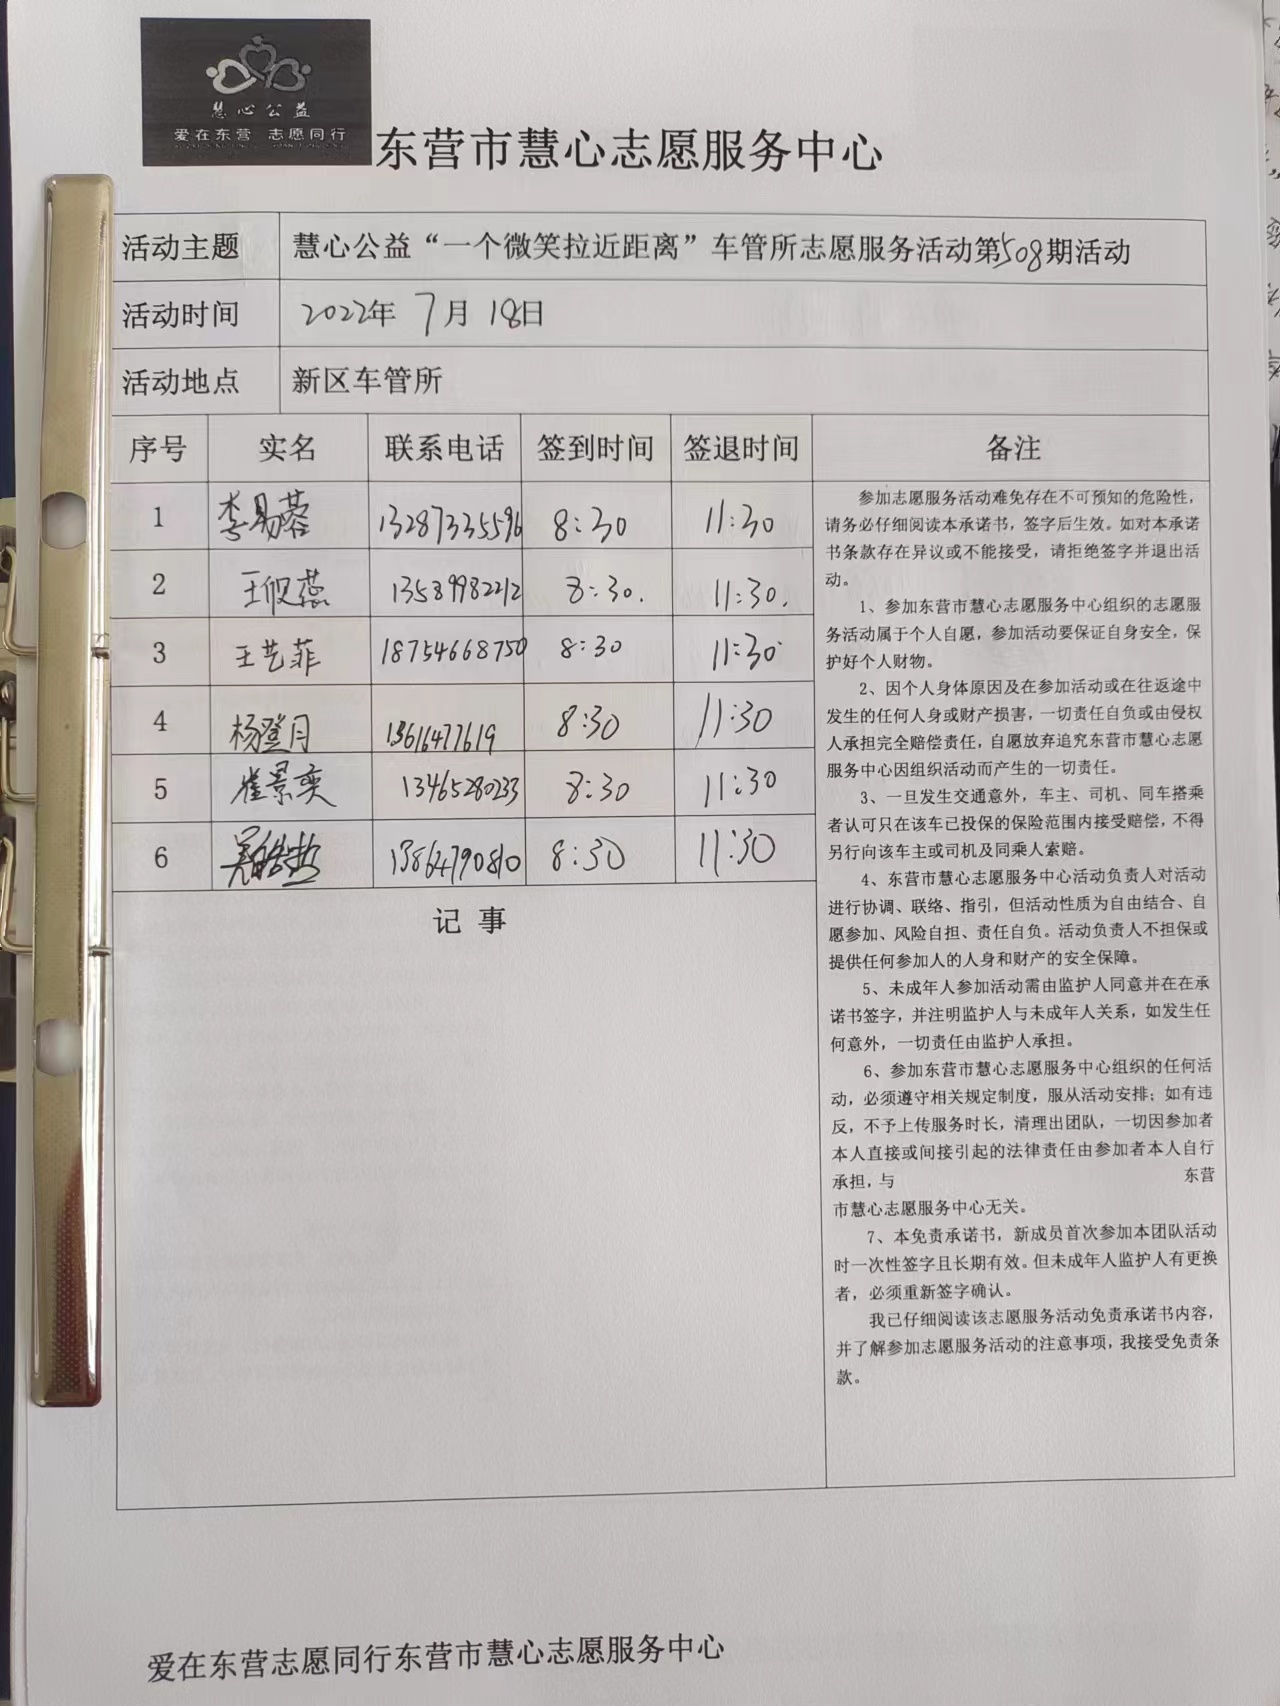 慧心公益
爱在东营 志愿同行
东营市慧心志愿服务中心
活动主题 慧心公益“一个微笑拉近距离”车管所志愿服务活动第508期活动
活动时间 2022年 7月 18日
活动地点 新区车管所
序号 实名 联系电话 签到时间 签退时间 备注
1 李易蓉 13287335596 8:30 11:30
2 13589982212 8:30. 11:30.
3 王艺菲 18754668750 8:30 11:30
4 杨登月 13616477619 8:30 11:30
5 崔景奕 13465280233 8:30 11:30
6 13864790810 8:30 11:30
记 事
参加志愿服务活动难免存在不可预知的危险性，
请务必仔细阅读本承诺书，签字后生效。如对本承诺
书条款存在异议或不能接受，请拒绝签字并退出活
动。
1、参加东营市慧心志愿服务中心组织的志愿服
务活动属于个人自愿，参加活动要保证自身安全，保
护好个人财物。
2、因个人身体原因及在参加活动或在往返途中
发生的任何人身或财产损害，一切责任自负或由侵权
人承担完全赔偿责任，自愿放弃追究东营市慧心志愿
服务中心因组织活动而产生的一切责任。
3、一旦发生交通意外，车主、司机、同车搭乘
者认可只在该车已投保的保险范围内接受赔偿，不得
另行向该车主或司机及同乘人索赔。
4、东营市慧心志愿服务中心活动负责人对活动
进行协调、联络、指引，但活动性质为自由结合、自
愿参加、风险自担、责任自负。活动负责人不担保或
提供任何参加人的人身和财产的安全保障。
5、未成年人参加活动需由监护人同意并在在承
诺书签字，并注明监护人与未成年人关系，如发生任
何意外，一切责任由监护人承担。
6、参加东营市慧心志愿服务中心组织的任何活
动，必须遵守相关规定制度，服从活动安排；如有违
反，不予上传服务时长，清理出团队，一切因参加者
本人直接或间接引起的法律责任由参加者本人自行
承担，与 东营
市慧心志愿服务中心无关。
7、本免责承诺书，新成员首次参加本团队活动
时一次性签字且长期有效。但未成年人监护人有更换
者，必须重新签字确认。
我已仔细阅读该志愿服务活动免责承诺书内容，
并了解参加志愿服务活动的注意事项，我接受免责条
款。
爱在东营志愿同行东营市慧心志愿服务中心